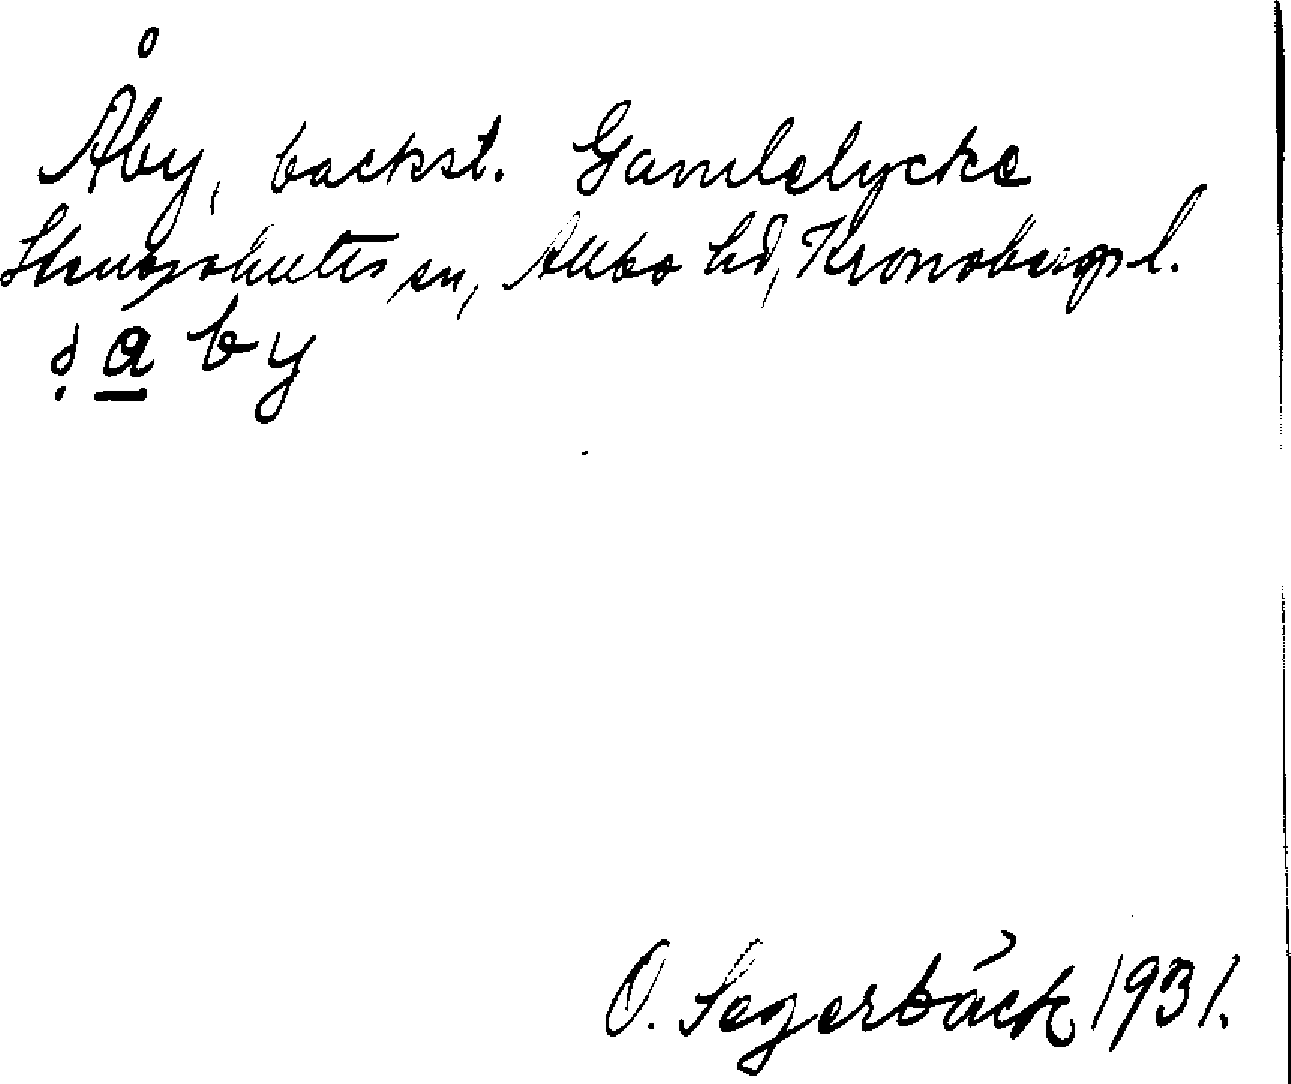 Åby, backst. Gamlelycke
Stenbrohults sn, Allbo hd, Kronobergs l.
by
O. Segerbäck 1931.